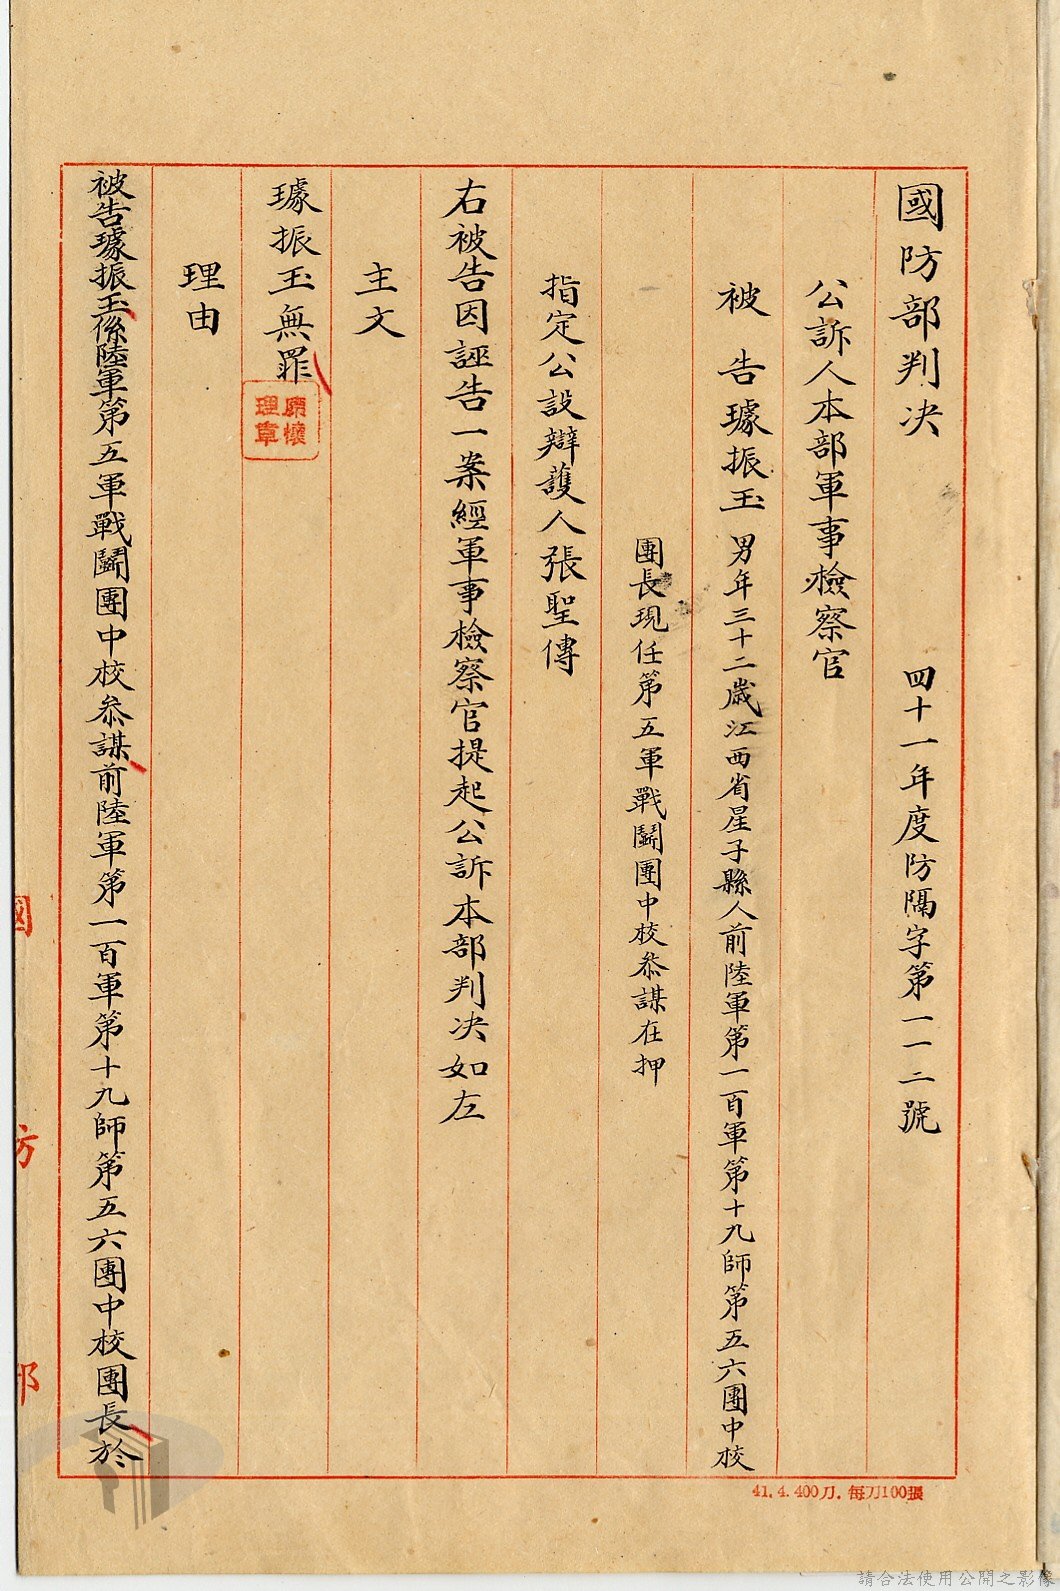 國防部判決
四十一年度防隔字第一一二號
公訴人本部軍事檢察官
被告璩振玉男年三十二歲江西省星子縣人前陸軍第一百軍第十九師第五六團中校
團長現任第五軍戰鬪團中校參謀在押
指定公設辯護人張聖傳
右被告因誣告一案經軍事檢察官提起公訴本部判決如左
主文
璩振玉無罪
理由
被告璩振玉係陸軍第五軍戰鬪團中校參謀前陸軍第一百軍第十九師第五六團中校團長於
國防部
41.4.400刀.每刀100張
請合法使用公開之影像